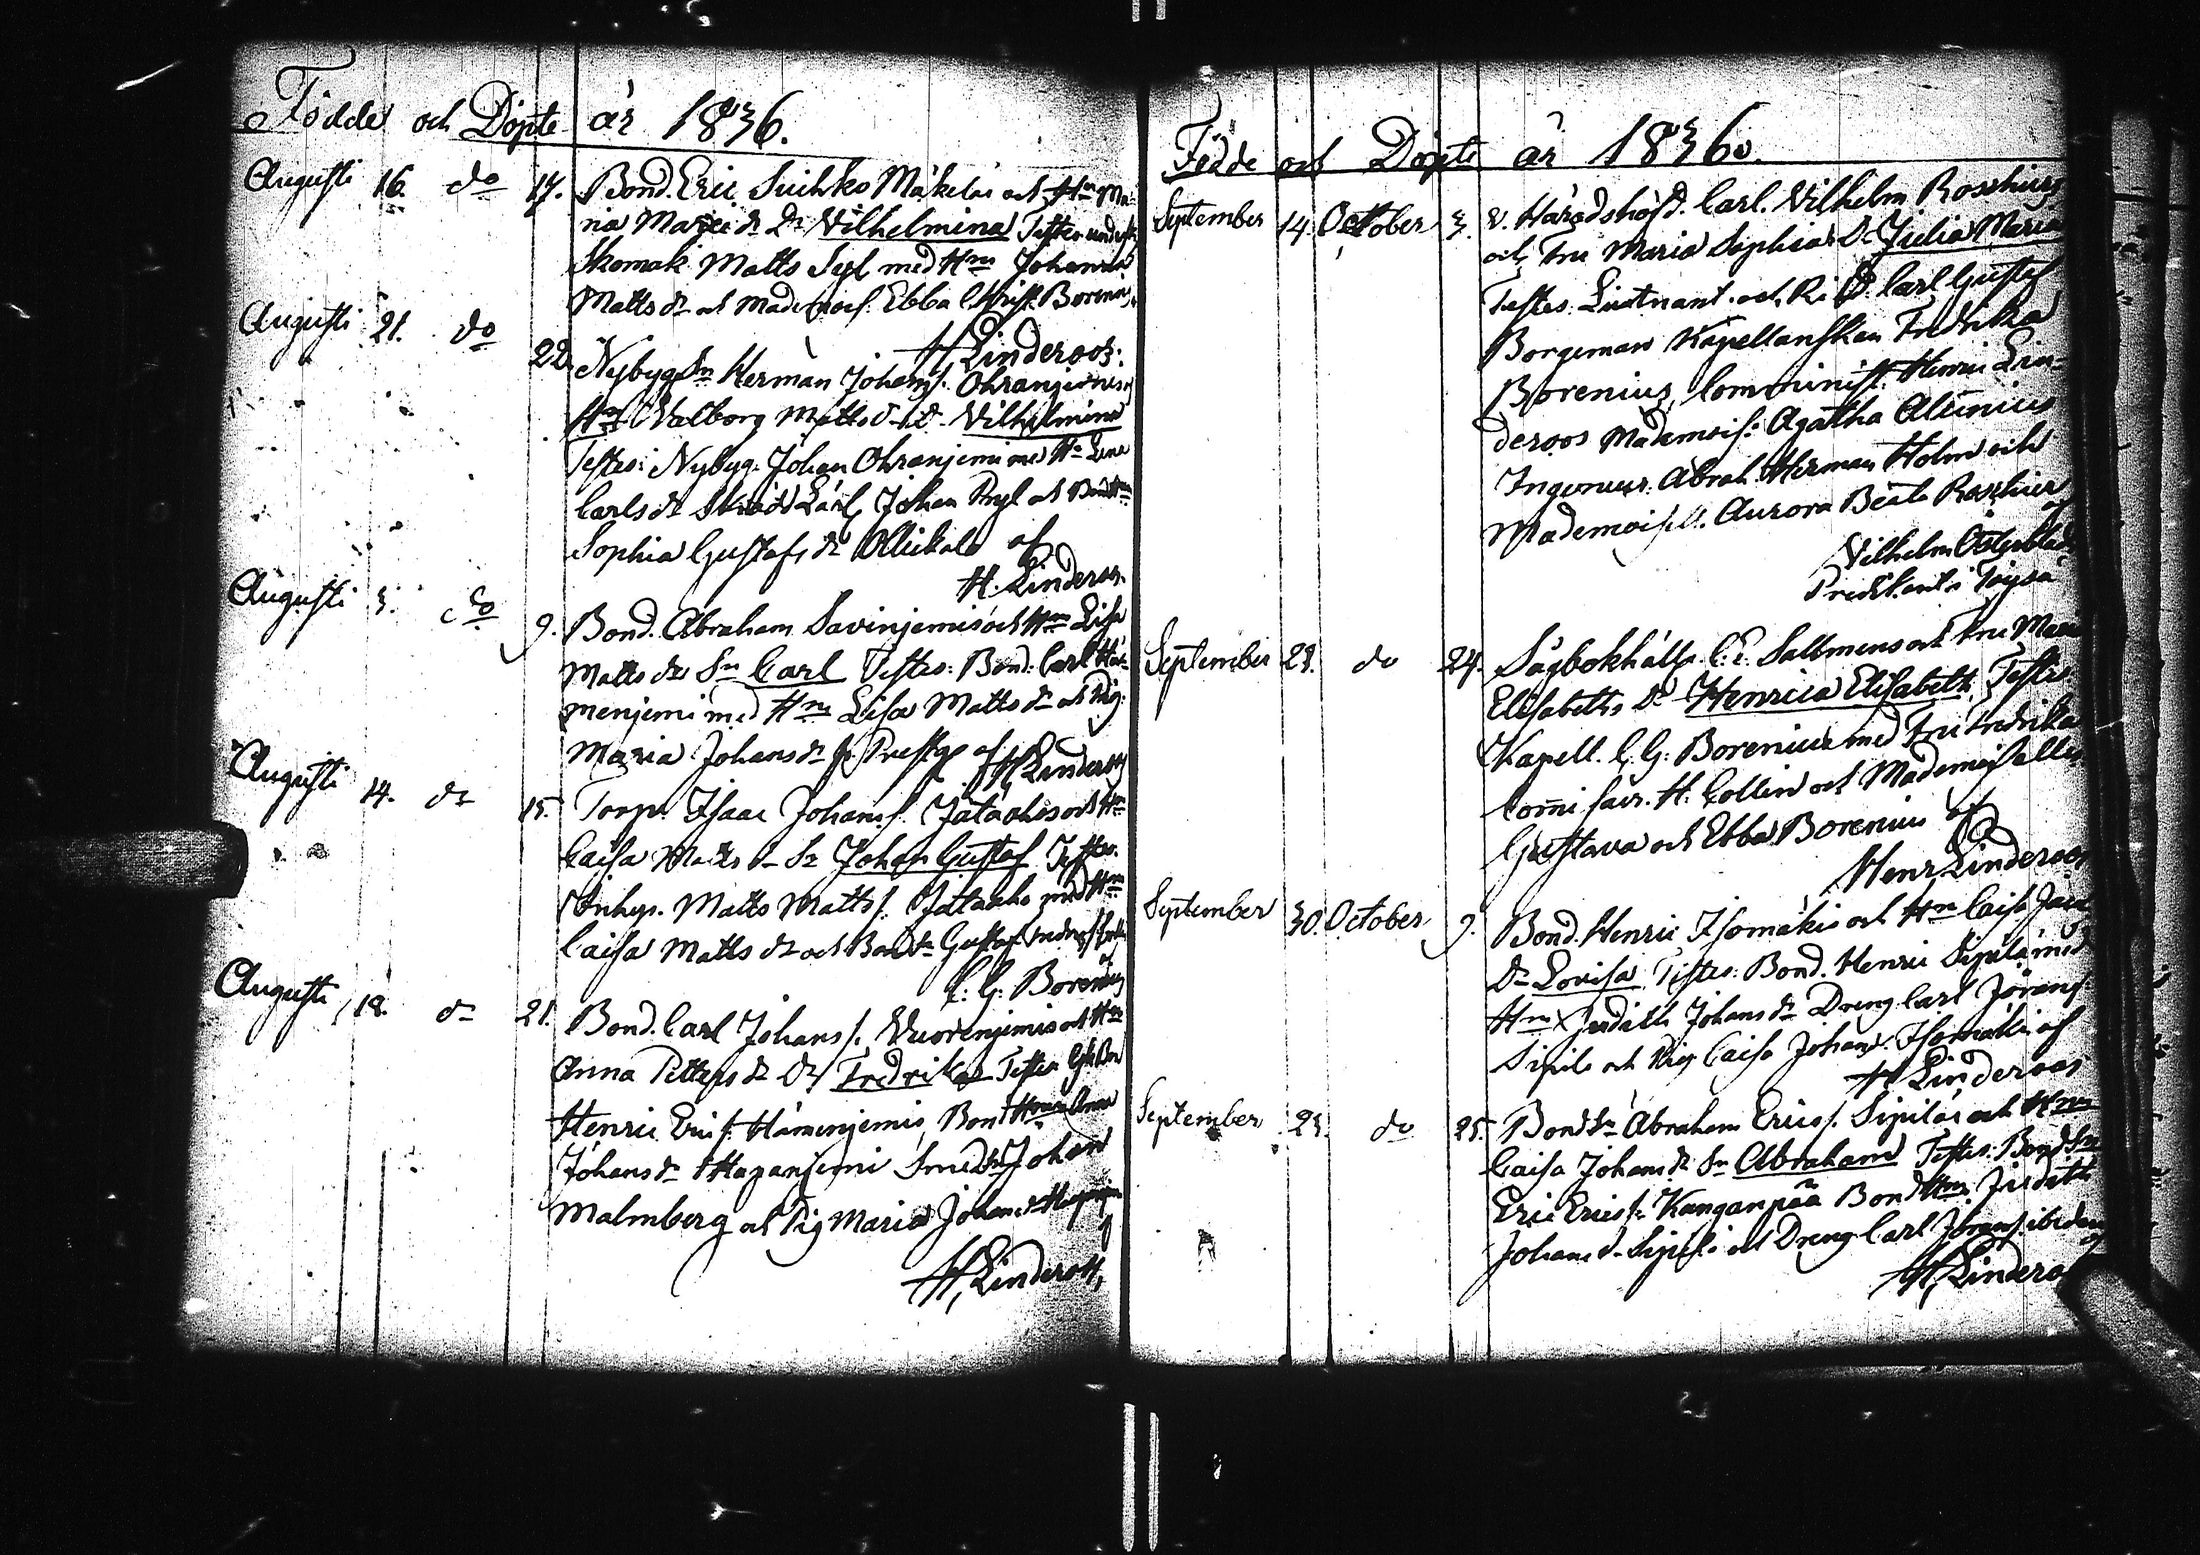 Födde och Döpte år 1836.
Augusti 16. do 17. Bond. Eric Mäkeläs och Hru Ma-
ria Dr Vilhelmina Testes
Skomak. Matts Syl med Hru Johanna
Matts dr och Mademois. Ebba Christ. Boreni
H Linderoos.
Augusti 21. do 22. Nybyg Sn Herman Johans s.
Hru Valborg Matts d. D. Vilhelmina
Testes: Nybyg. Johan med Hu Lena
Carls dr Johan Pryl och
Sophia Gustafs dr Ollikala af
H. Linderoos.
Augusti 3. do 9. Bond. Abraham Savinjemis och Hru Lisa
Matts drs Sn Carl Testes: Bond. Carl Hä-
menjemi med Hru Lisa Matts dr och Pig.
Maria Johans dr fr. Prestg. af H Linderoos
Augusti 14. do 15. Torp. Isaac Johans s. Jätaahos och Hru
Caisa Matts d. Sn Johan Gustaf Testes.
Inhys. Matts Matts s. Jätaaho med Hru
Caisa Matts dr och Bond Sn Gustaf
af
C. G. Borenius
Augusti 18. do 21. Bond. Carl Johans s. Vuorenjemis och Hru
Anna Petters dr Dr Fredrika Testes
Henric Erics s. Hämenjemis, Bond Hru Anna
Johans dr Hapanjemi Johan
Malmberg och Pig Maria Johans dr
H. Linderoos
Födde och Döpte år 1836.
September 14. October 3. v. Häradshöfd. Carl. Vilhelm Roschier
och Fru Maria Sophias Dr Julia Maria
Testes: Lieutnant och Ridd. Carl Gustaf
Borgeman Kapellanskan Fredrika
Borenius, Comminist. Henric Lin-
deroos Mademois: Agatha Alcenius
Ingenieur. Abrah. Herman Holm och
Mademoisel. Aurora Beata Roschier
af
Vilhelm Österbladh
Predikant i Töysä
September 23. do 24. Sågbokhålla. C. E. Salbmens och Fru Maria
Elisabeths Dr Henrica Elisabeth Testes.
Kapell. C. G. Borenius med Fru Fredrika
Comissair. H. Collin och Mademoiselle
Gustava och Ebba Borenius af
Henr Linderoos
September 30. October 9. Bond. Henric Isomäkis och Hru Caisa
Dr Lovisa Testes: Bond. Henric Sipilä med
Hru Judith Johans dr Dreng Carl Jörans s.
Sipilä och Pig Caisa Johans d. Isomäki af
H Linderoos
September 23. do 25. Bond Sn Abraham Erics s. Sipiläs och Hru
Caisa Johans dr Sn Abraham Testes. Bond Sn
Eric Erics s. Kanganpää Bond Hru Judith
Johans d. Sipilä och Dreng Carl Jörans s. ibidem
af
H, Linderoos